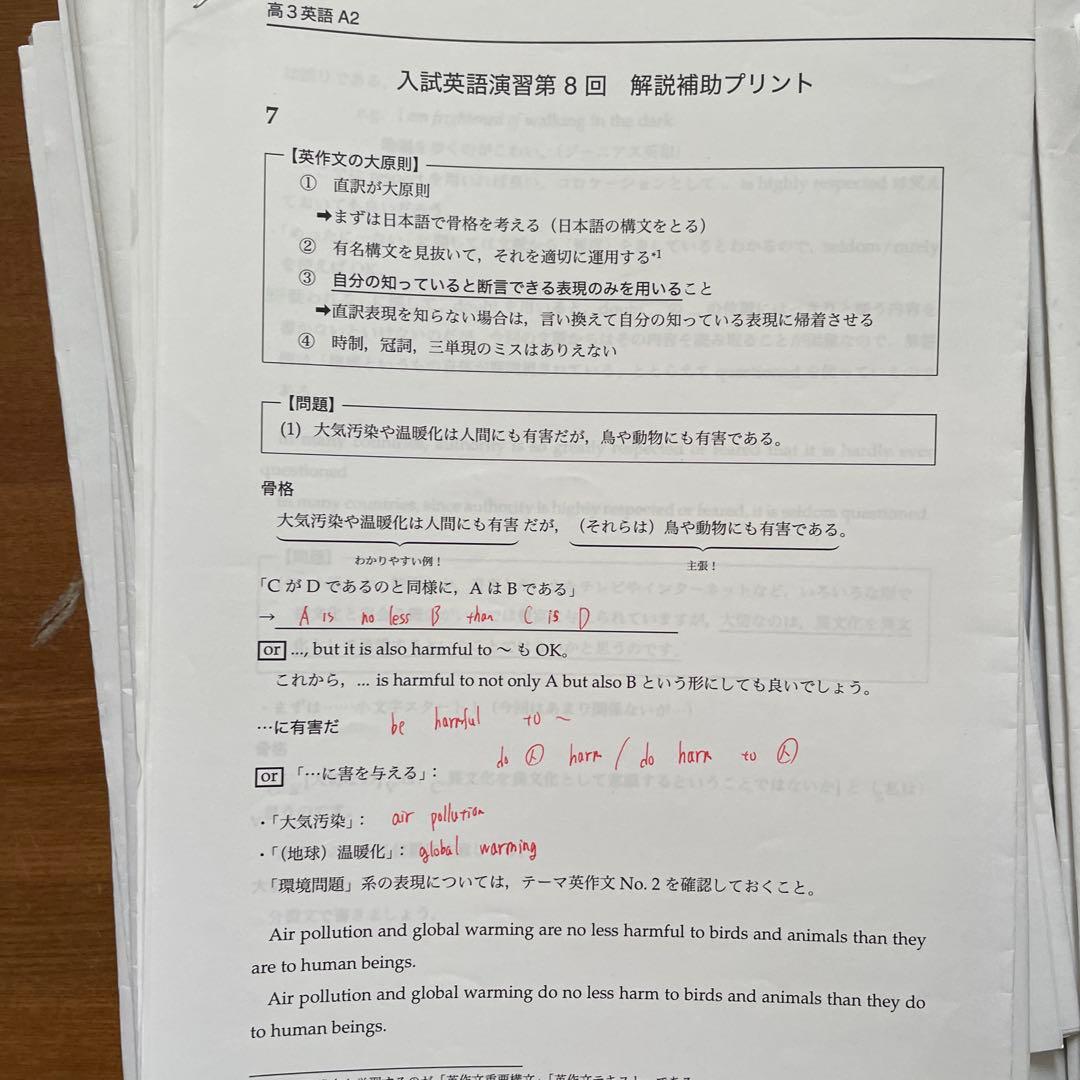 高3英語 A2
入試英語演習第8回 解説補助プリント
7
【英作文の大原則】
① 直訳が大原則
➡まずは日本語で骨格を考える（日本語の構文をとる）
② 有名構文を見抜いて，それを適切に運用する*1
③ 自分の知っていると断言できる表現のみを用いること
➡直訳表現を知らない場合は，言い換えて自分の知っている表現に帰着させる
④ 時制，冠詞，三単現のミスはありえない
【問題】
(1) 大気汚染や温暖化は人間にも有害だが，鳥や動物にも有害である。
骨格
大気汚染や温暖化は人間にも有害 だが，（それらは）鳥や動物にも有害である。
わかりやすい例！ 主張！
「CがDであるのと同様に，AはBである」
→ A is no less B than C is D
or ..., but it is also harmful to ～もOK。
これから，... is harmful to not only A but also B という形にしても良いでしょう。
…に有害だ be harmful to ～
do Ⓐ harm / do harm to Ⓐ
or 「…に害を与える」：
・「大気汚染」： air pollution
・「（地球）温暖化」： global warming
「環境問題」系の表現については，テーマ英作文 No. 2 を確認しておくこと。
Air pollution and global warming are no less harmful to birds and animals than they
are to human beings.
Air pollution and global warming do no less harm to birds and animals than they do
to human beings.